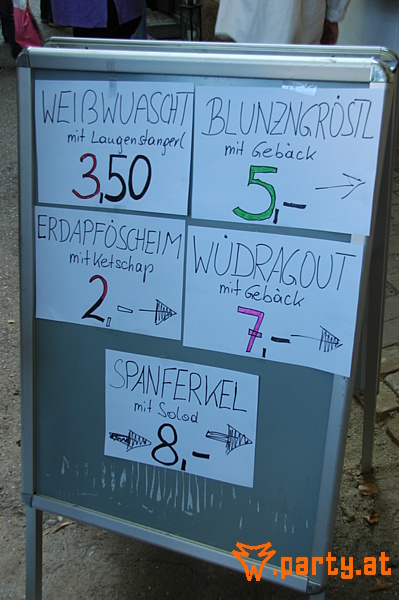 WEIßWUASCHT
mit Laugenstangerl
3,50
BLUNZNGRÖSTL
mit Gebäck
5,-
ERDAPFÖSCHEIM
mit Ketschap
2,-
WÜDRAGOUT
mit Gebäck
7,-
SPANFERKEL
mit Solod
8,-
w.party.at